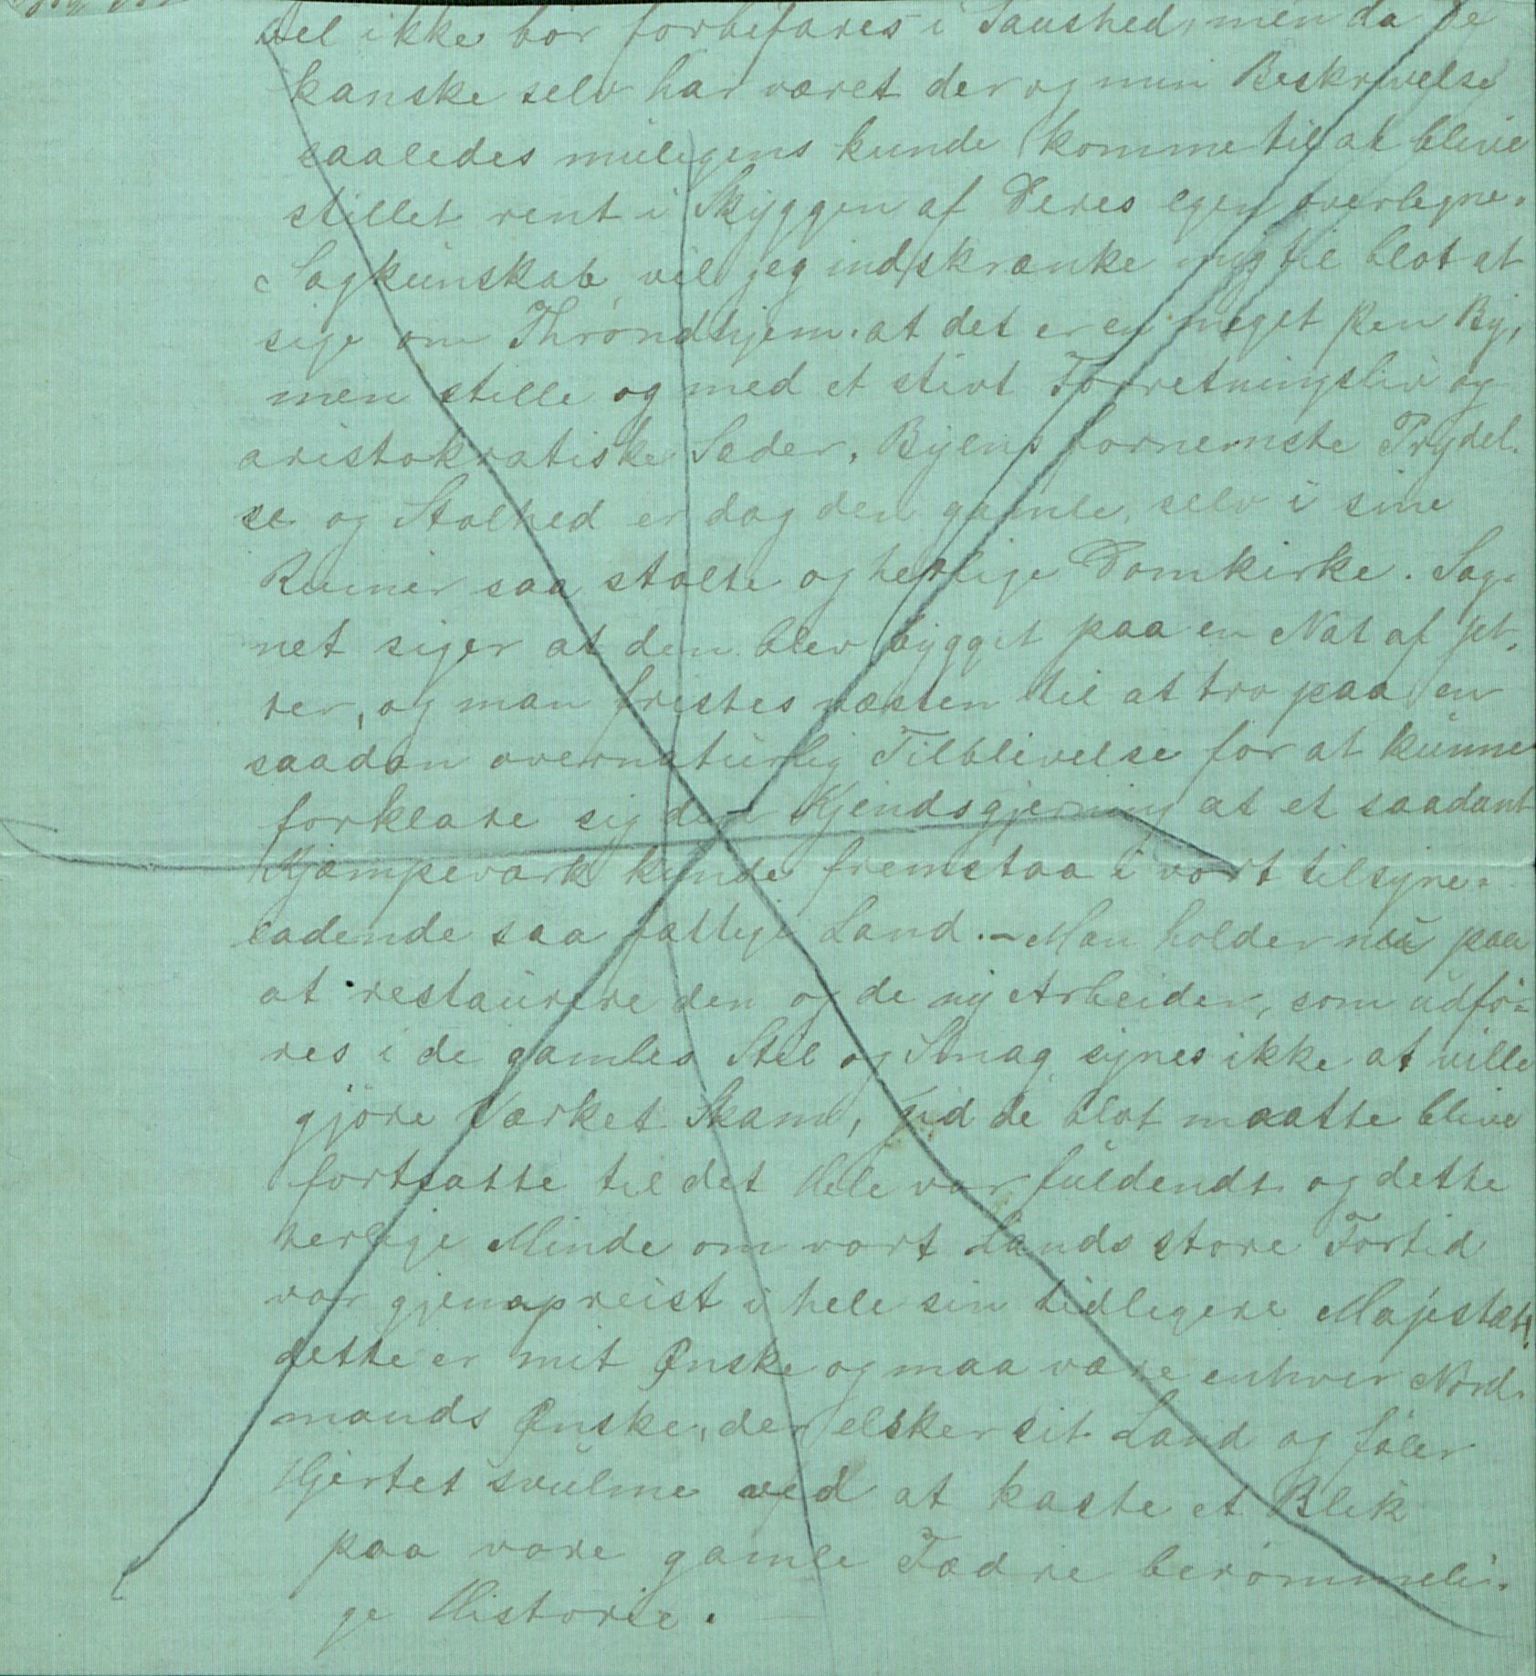 vel ikke bør forbefares i Taushed, men da De
kanske selv har været der og min Beskrivelse
saaledes muligens kunde komme til at blive
stillet rent i Skyggen af Deres egen overlegne
Sagkunskab vil jeg indskrænke mig til blot at
sige om Throndhjem at det er en meget pen By,
men stille og med et stivt Forretningsliv og
aristokratiske Sæder. Byens fornemste Prydel-
se og Stolhed er dog den gamle, selv i sine
Ruiner saa stolte og herlige Domkirke. Sag-
net siger at den blev bygget paa en Nat af Jet-
ter, og man fristes næsten til at tro paa en
saadan overnaturlig Tilblivelse for at kunne
forklare sig den Kjendsgjerning at et saadant
Kjæmpeværk kunde fremstaa i vort tilsyne-
ladende saa fattige Land. - Man holder nu paa
at restaurere den og de ny Arbeider, som udfø-
res i de gamles Stil og Smag synes ikke at ville
gjøre Værket Skam, gid de blot maatte blive
fortsatte til det Hele var fuldendt og dette
herlige Minde om vort Lands store Fortid
var gjenopreist i hele sin tidligere Majestæt!
dette er mit Ønske og maa være enhver Nord-
mands Ønske, der elsker sit Land og føler
Hjertet svulme ved at kaste et Blik
paa vore gamle Fædre berømmeli-
ge Historie.